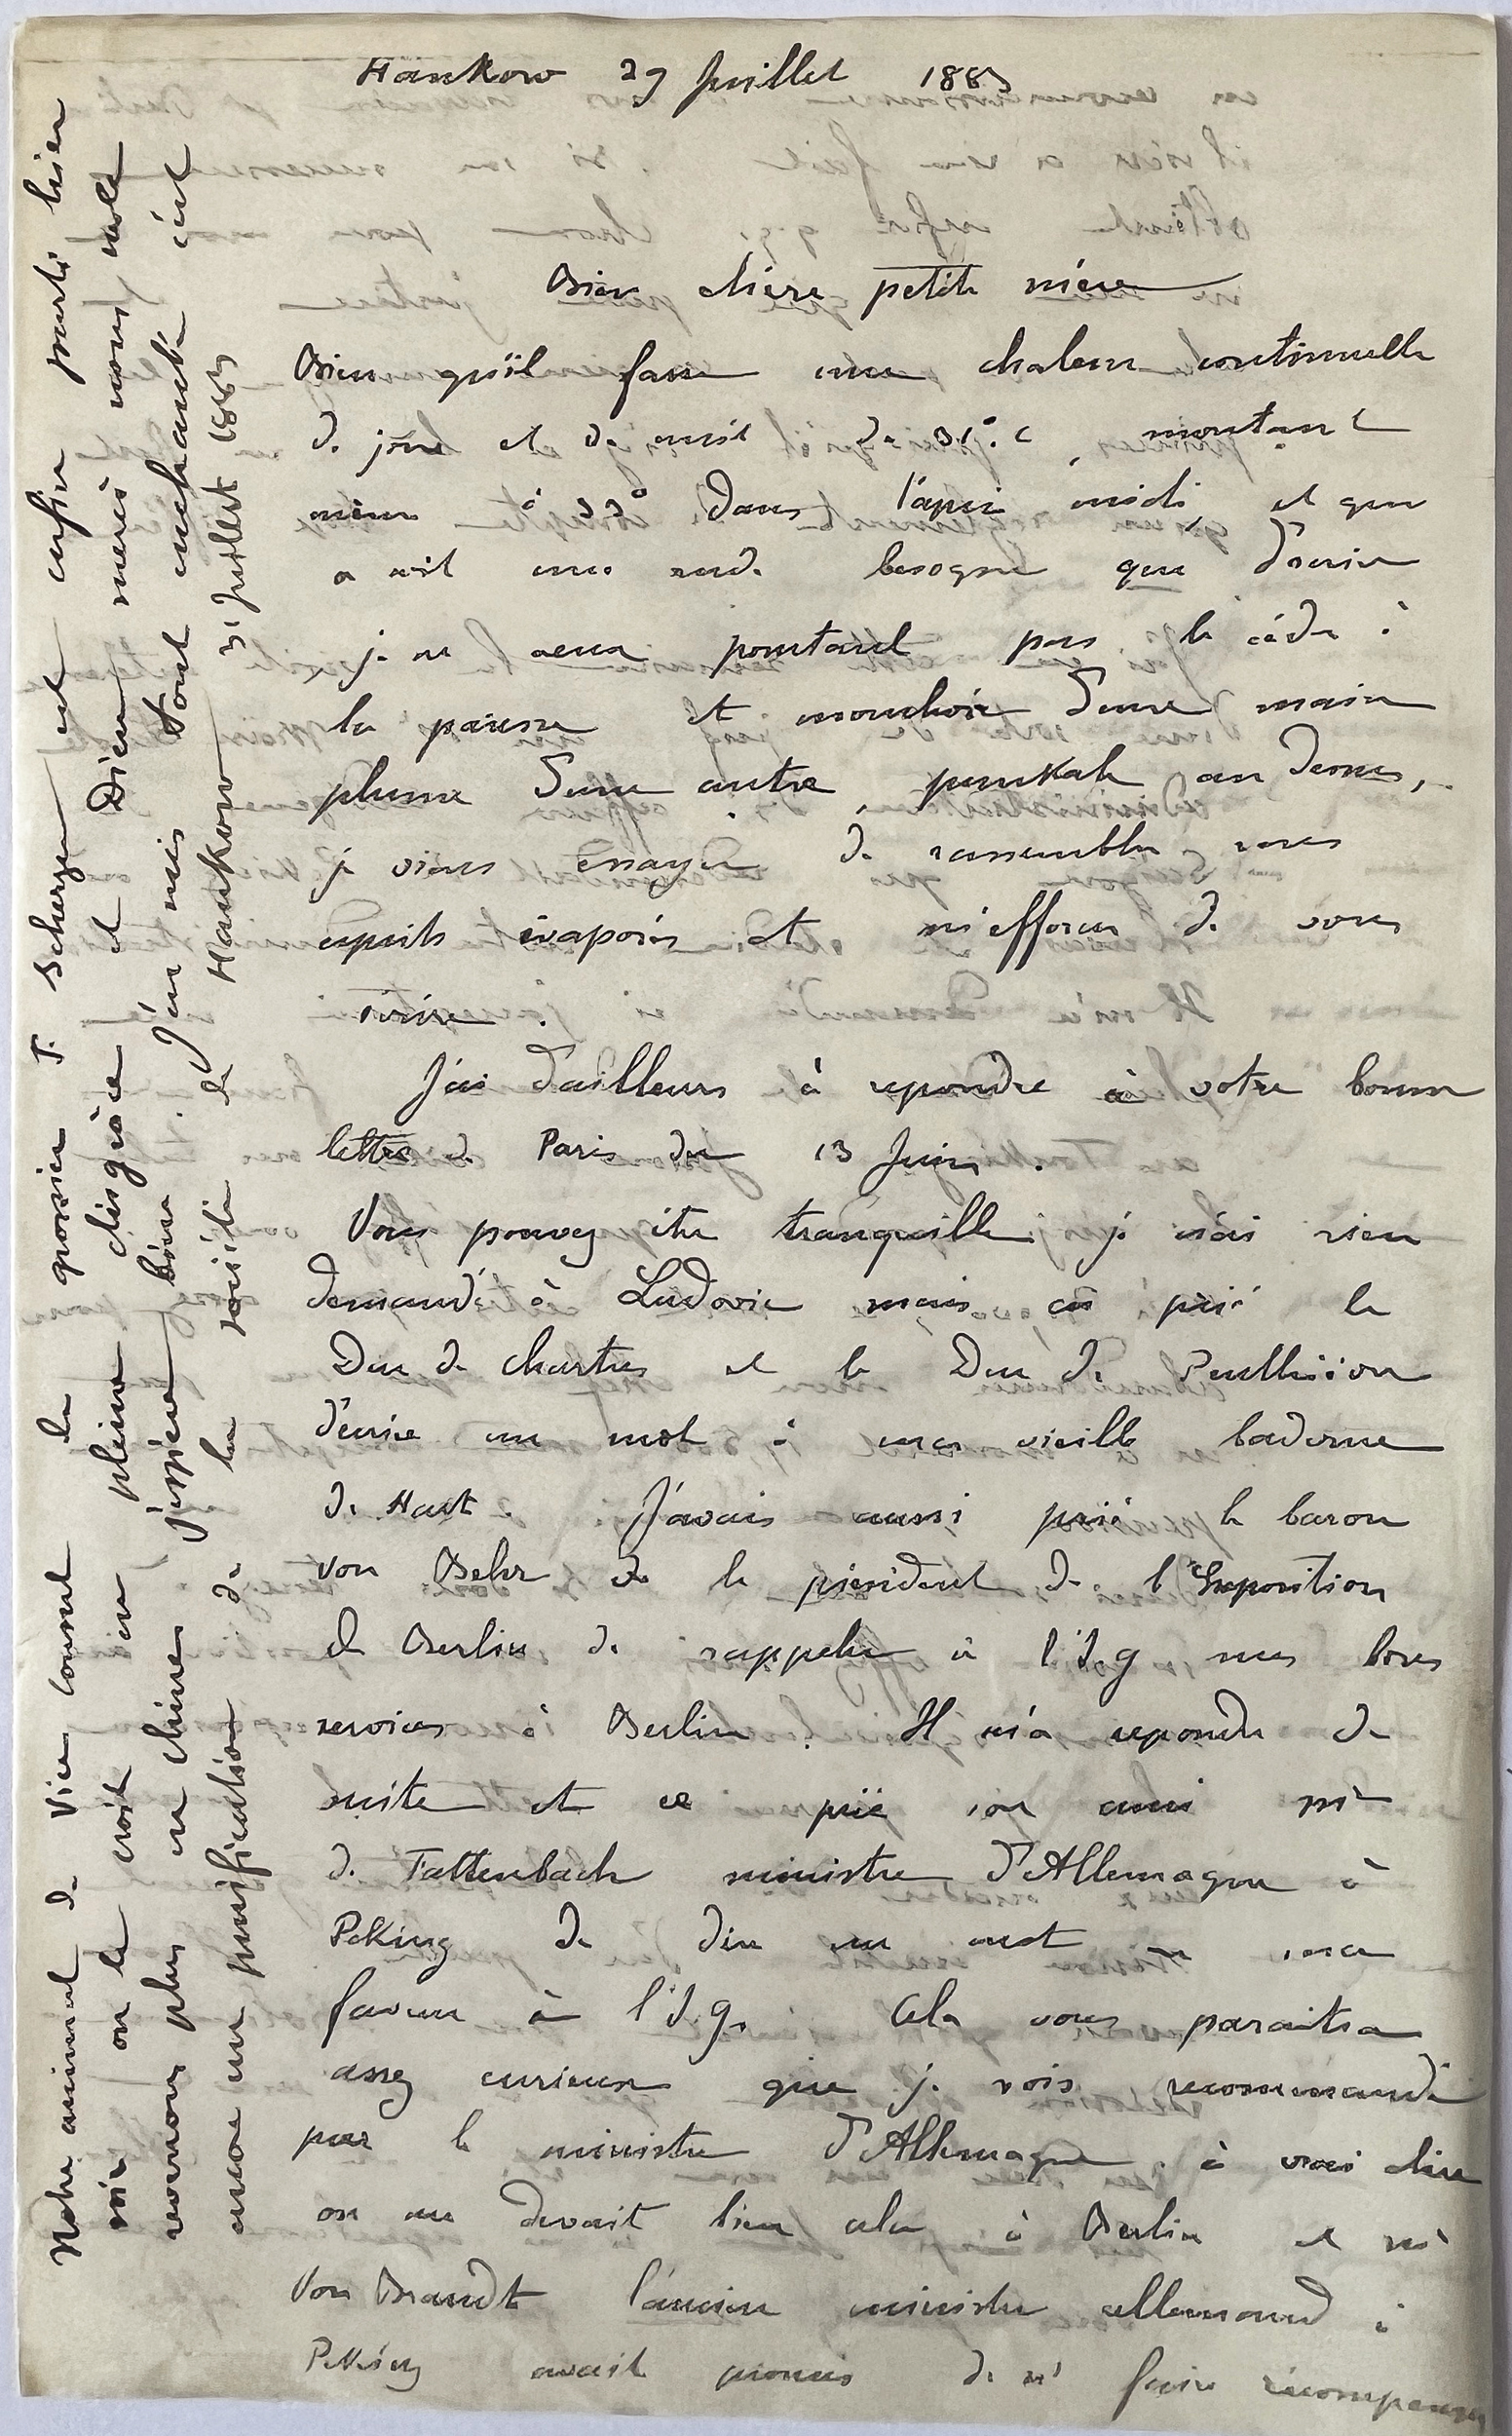 Hankow 29 Juillet 1883
Bien chère petite mère
Bien qu'il fasse une chaleur continuelle
de jour et de nuit de 31°. c, montant
même à 33° dans l'après midi, et que
ce soit une rude besogne que d'écrire
je ne veux pourtant pas le céder à
la paresse et mouchoir d'une main
plume d'une autre, punkah au dessus,
je viens essayer de rassembler mes
esprits évaporés et m'efforcer de vous
écrire.
J'ai d'ailleurs à repondre à votre bonne
lettre de Paris du 13 Juin.
Vous pouvez être tranquille je n'ai rien
demandé à Ludovic mais ai prié le
Duc de Chartres et le Duc de Penthièvre
d'écrire un mot à cette vieille baderne
de Hart. J'avais aussi prié le baron
von Behr et le président de l'Exposition
de Berlin de rappeler à l'I.g mes bons
services à Berlin. Il m'a repondu de
suite et a prié son ami Mr
de Tattenbach ministre d'Allemagne à
Peking de dire un mot en ma
faveur à l'I.g. Cela vous paraitra
assez curieux que je sois recommandé
par le ministre d'Allemagne à vrai dire
on me devait bien cela à Berlin et Mr
Von Brandt l'ancien ministre allemand à
Peking avait promis de m' faire récompenser
Notre animal de Vice Consul le grossier F. Scherzer est enfin parti hier
soir on le croit en pleine disgrâce et Dieu merci nous ne le
reverrons plus en Chine j'espère bien. J'en suis tout enchanté c'est
encore une purification de la société de Hankow 31 Juillet 1883